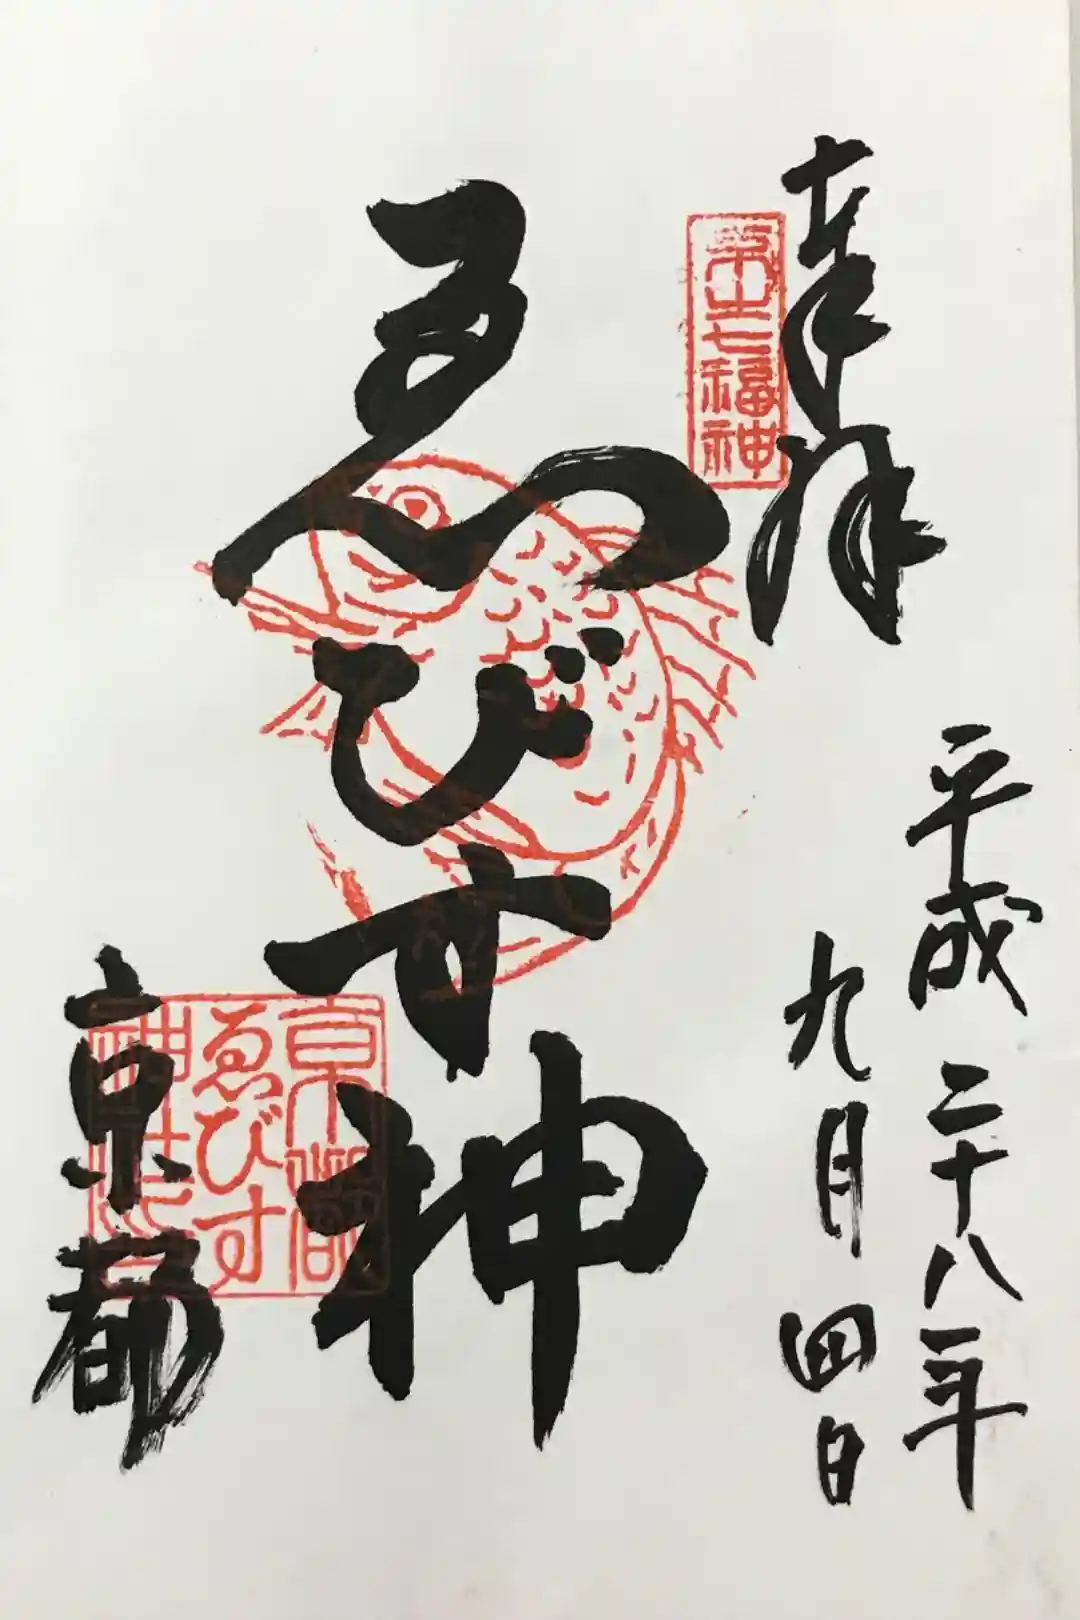 奉拝
七福神
平成二十八年
九月四日
ゑびす神
京都
京都
ゑびす
神社